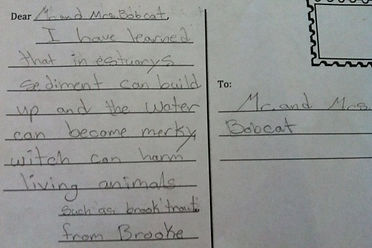 Dear Mr. and Mrs. Bobcat,
I have learned
that in estuarys
sediment can build
up and the water
can become merky
witch can harm
living animals
such as brook trout.
from Brooke
To:
Mr. and Mrs.
Bobcat